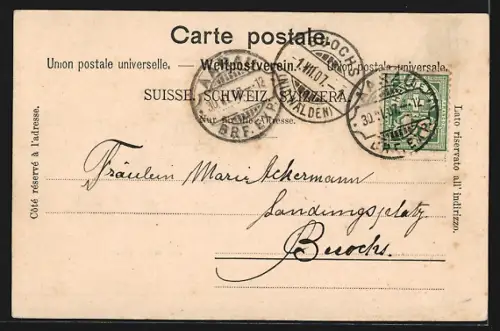 Carte postale.
Union postale universelle. — Weltpostverein. — Union postale universale.
SUISSE. SCHWEIZ. SVIZZERA.
Nur für die Adresse.
Côté réservé à l'adresse.
Lato riservato all' indirizzo.
BUOCHS
1.VII.07.
(NIDWALDEN)
BRF. EXP.
AARAU
30
BRF. EXP.
Fräulein Marie Ackermann
Landungsplatz
Buochs.